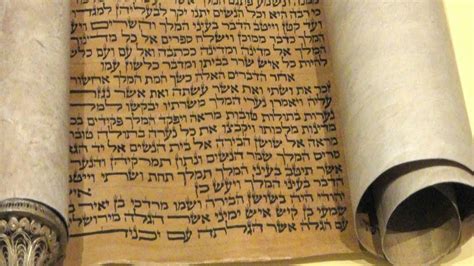 כי רבה היא וכל הנשים יתנו יקר לבעליהן
ועד קטן וייטב הדבר בעיני המלך
המלך כדבר ממוכן וישלח ספרים אל כל
המלך אל מדינה ומדינה ככתבה ואל עם ועם
להיות כל איש שרר בביתו ומדבר כלשון עמו
אחר הדברים האלה כשך חמת המלך אחשורוש
זכר את ושתי ואת אשר עשתה ואת אשר נגזר
עליה ויאמרו נערי המלך משרתיו יבקשו למלך
נערות בתולות טובות מראה ויפקד המלך פקידים בכל
מדינות מלכותו ויקבצו את כל נערה בתולה טובת
מראה אל שושן הבירה אל בית הנשים אל יד
סריס המלך שמר הנשים ונתון תמרקיהן והנערה
אשר תיטב בעיני המלך תמלך תחת ושתי וייטב
הדבר בעיני המלך ויעש כן איש
יהודי היה בשושן הבירה ושמו מרדכי בן יאיר בן
שמעי בן קיש איש ימיני אשר הגלה מירושלים
עם הגלה אשר הגלתה עם יכניה